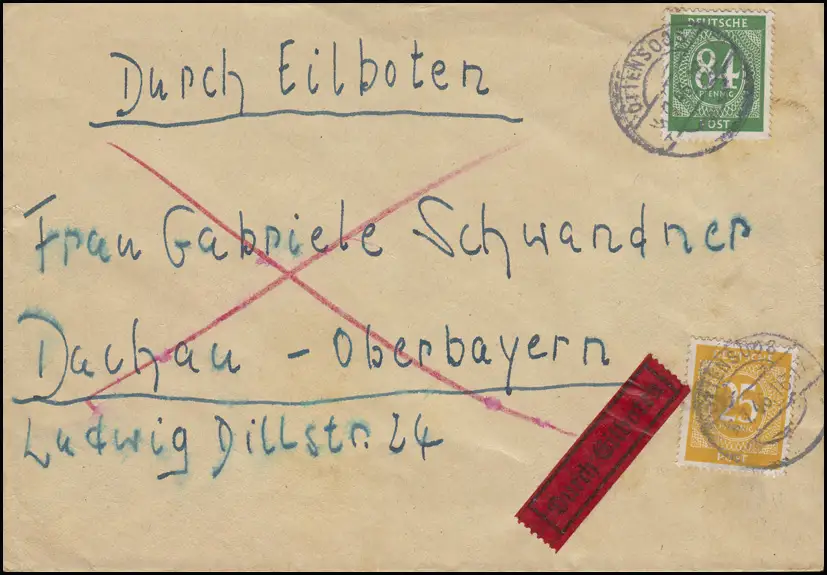 Durch Eilboten
DEUTSCHE
84
PFENNIG
POST
Frau Gabriele Schwandner
Dachau - Oberbayern
Ludwig Dillstr. 24
25
PFENNIG
POST
Durch